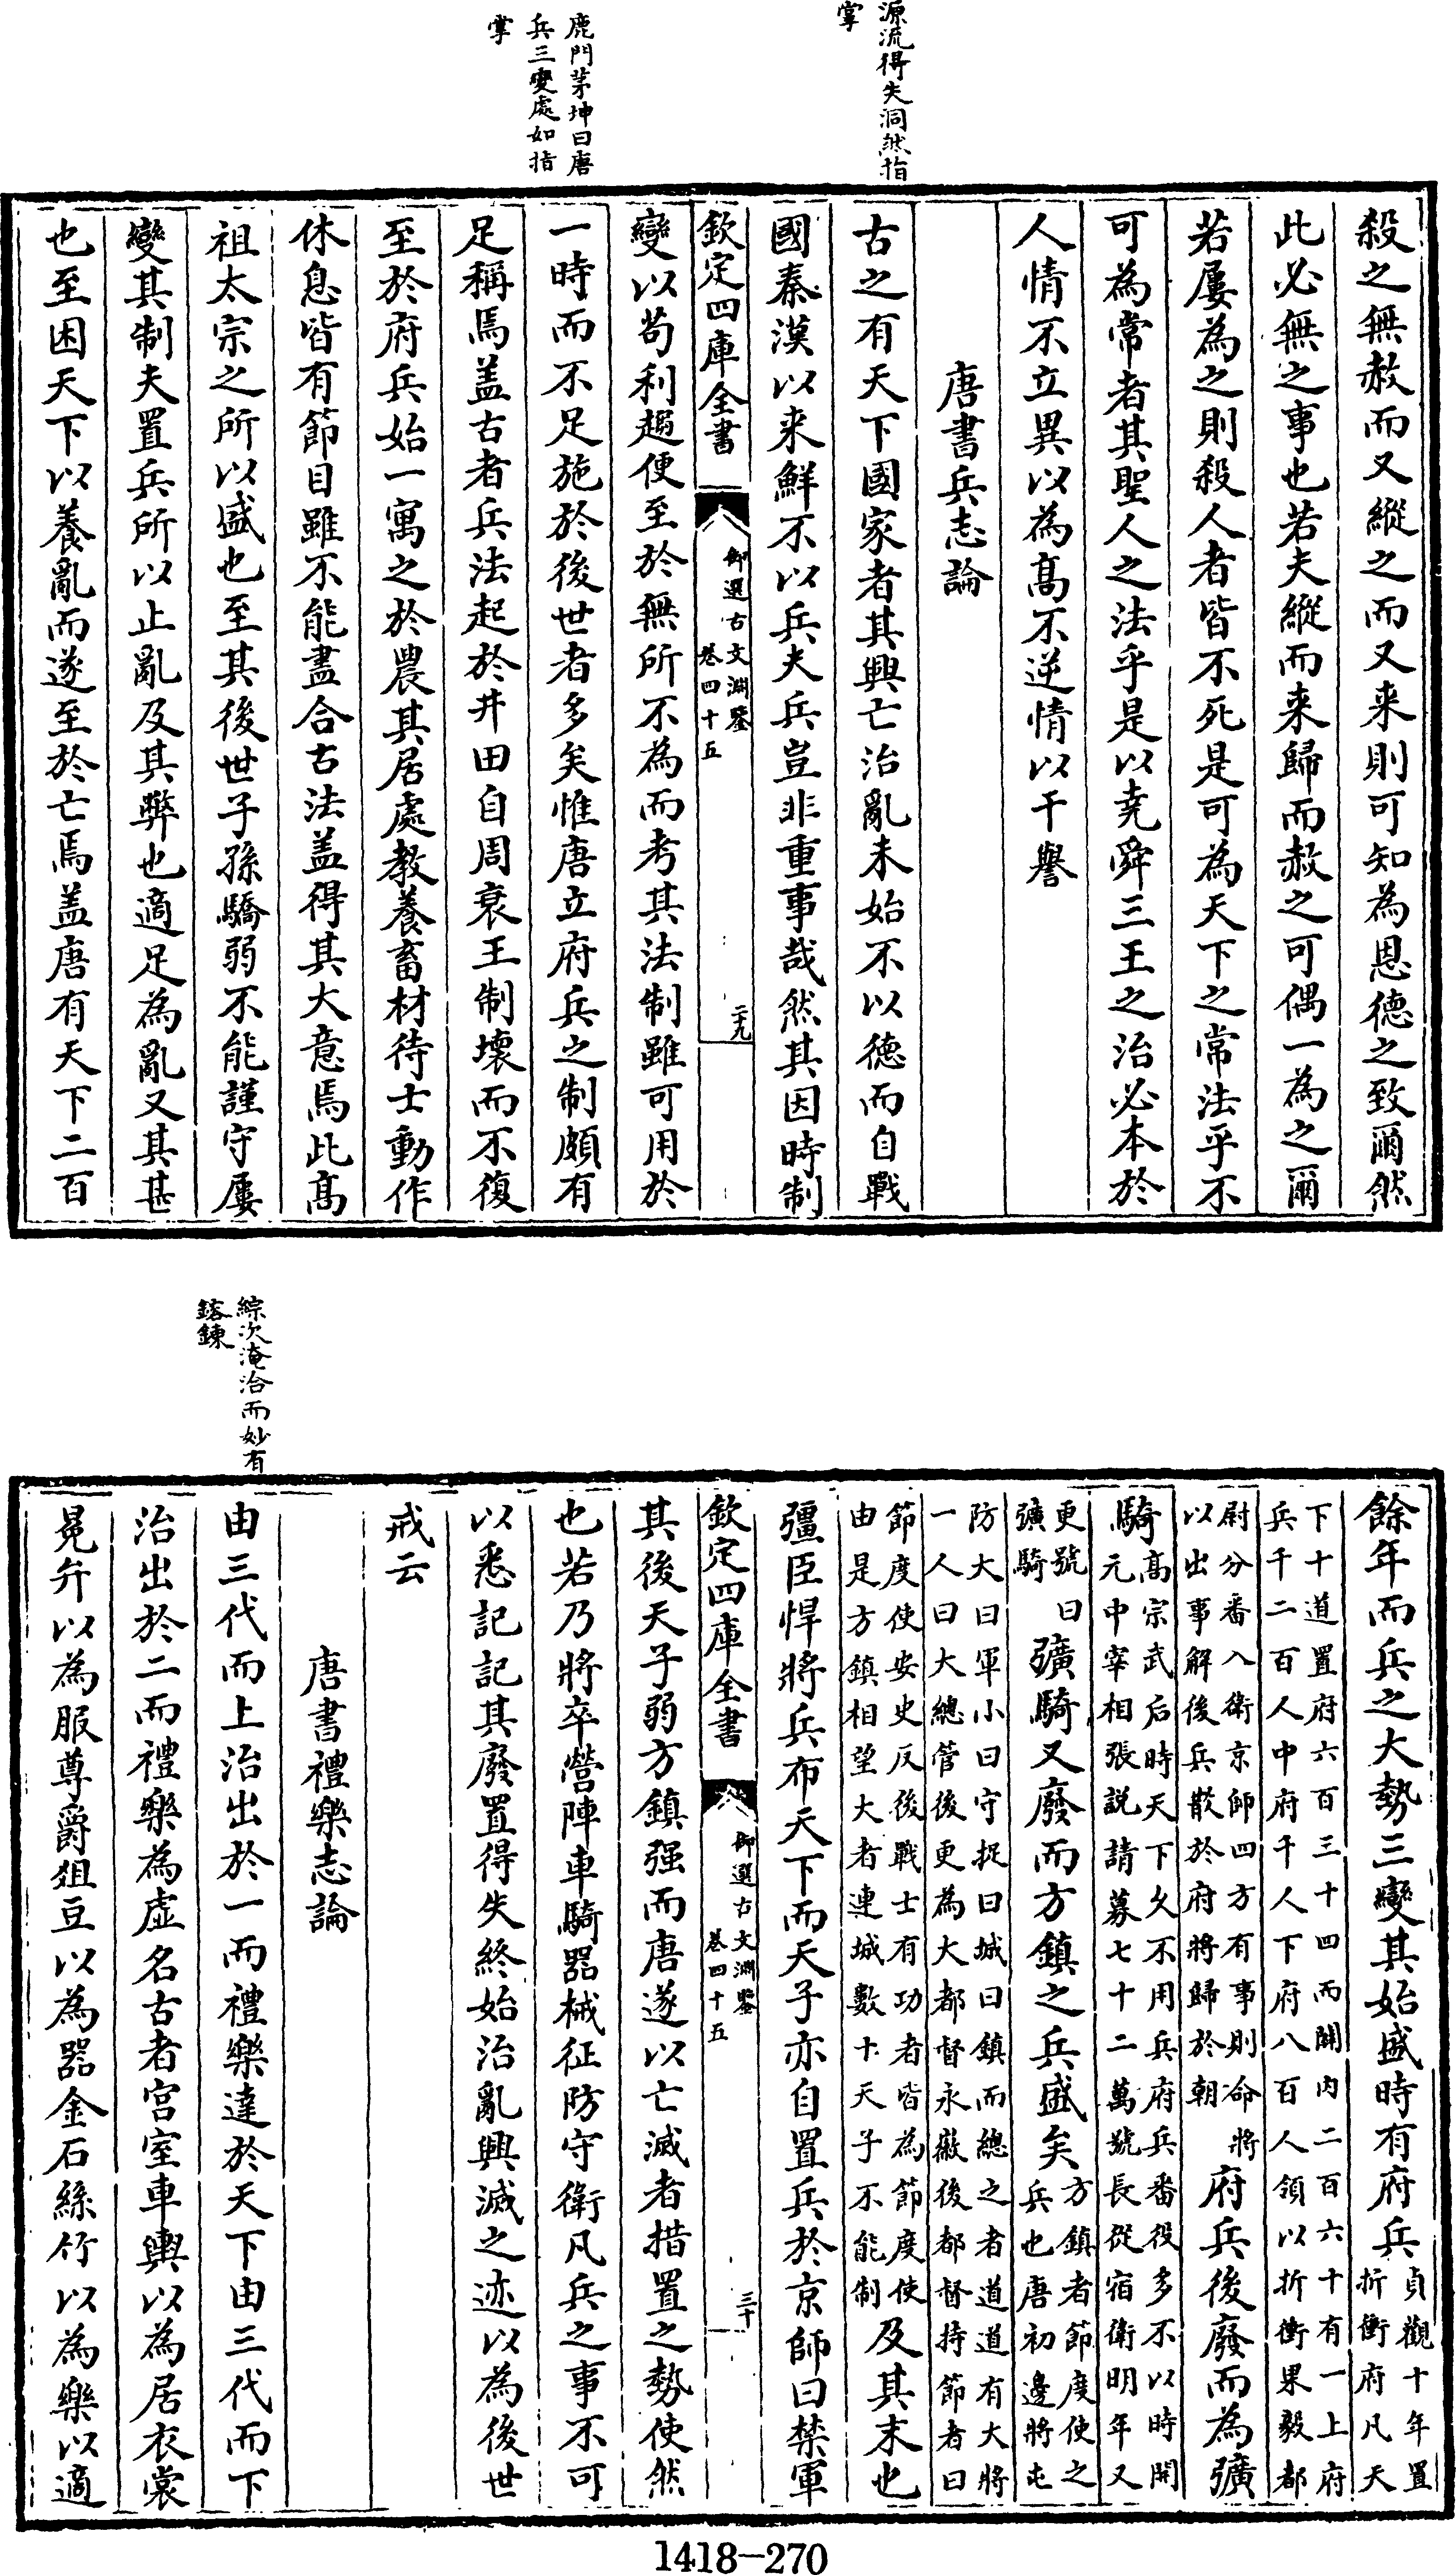 源流得失洞然指
掌
鹿門茅坤曰唐
兵三變處如指
掌
殺之無赦而又縱之而又来則可知為恩德之致爾然
此必無之事也若夫縱而来歸而赦之可偶一為之爾
若屢為之則殺人者皆不死是可為天下之常法乎不
可為常者其聖人之法乎是以堯舜三王之治必本於
人情不立異以為髙不逆情以干譽
唐書兵志論
古之有天下國家者其興亡治亂未始不以徳而自戰
國秦漢以来鮮不以兵夫兵豈非重事哉然其因時制
欽定四庫全書
御選古文淵鑒
卷四十五
二十九
變以苟利趨便至於無所不為而考其法制雖可用於
一時而不足施於後世者多矣惟唐立府兵之制頗有
足稱焉盖古者兵法起於井田自周衰王制壞而不復
至於府兵始一寓之於農其居處教養畜材待士動作
休息皆有節目雖不能盡合古法盖得其大意焉此髙
祖太宗之所以盛也至其後世子孫驕弱不能謹守屢
變其制夫置兵所以止亂及其弊也適足為亂又其甚
也至困天下以養亂而遂至於亡焉盖唐有天下二百
綜次淹洽而妙有
鎔鍊
餘年而兵之大勢三變其始盛時有府兵貞觀十年置
折衝府凡天
下十道置府六百三十四而關内二百六十有一上府
兵千二百人中府千人下府八百人領以折衝果毅都
尉分番入衛京師四方有事則命將
以出事解後兵散於府將歸於朝
府兵後廢而為彍
騎髙宗武后時天下久不用兵府兵番役多不以時開
元中宰相張説請募七十二萬號長從宿衛明年又
更號曰
彍騎
彍騎又廢而方鎮之兵盛矣方鎮者節度使之
兵也唐初邊將屯
防大曰軍小曰守捉曰城曰鎮而總之者道道有大將
一人曰大總管後更為大都督永徽後都督持節者曰
節度使安史反後戰士有功者皆為節度使
由是方鎮相望大者連城數十天子不能制
及其末也
彊臣悍將兵布天下而天子亦自置兵於京師曰禁軍
欽定四庫全書
御選古文淵鑒
卷四十五
三十
其後天子弱方鎮强而唐遂以亡滅者措置之勢使然
也若乃將卒營陣車騎器械征防守衛凡兵之事不可
以悉記記其廢置得失終始治亂興滅之迹以為後世
戒云
唐書禮樂志論
由三代而上治出於一而禮樂達於天下由三代而下
治出於二而禮樂為虛名古者宮室車輿以為居衣裳
冕弁以為服尊爵俎豆以為器金石絲竹以為樂以適
1418-270